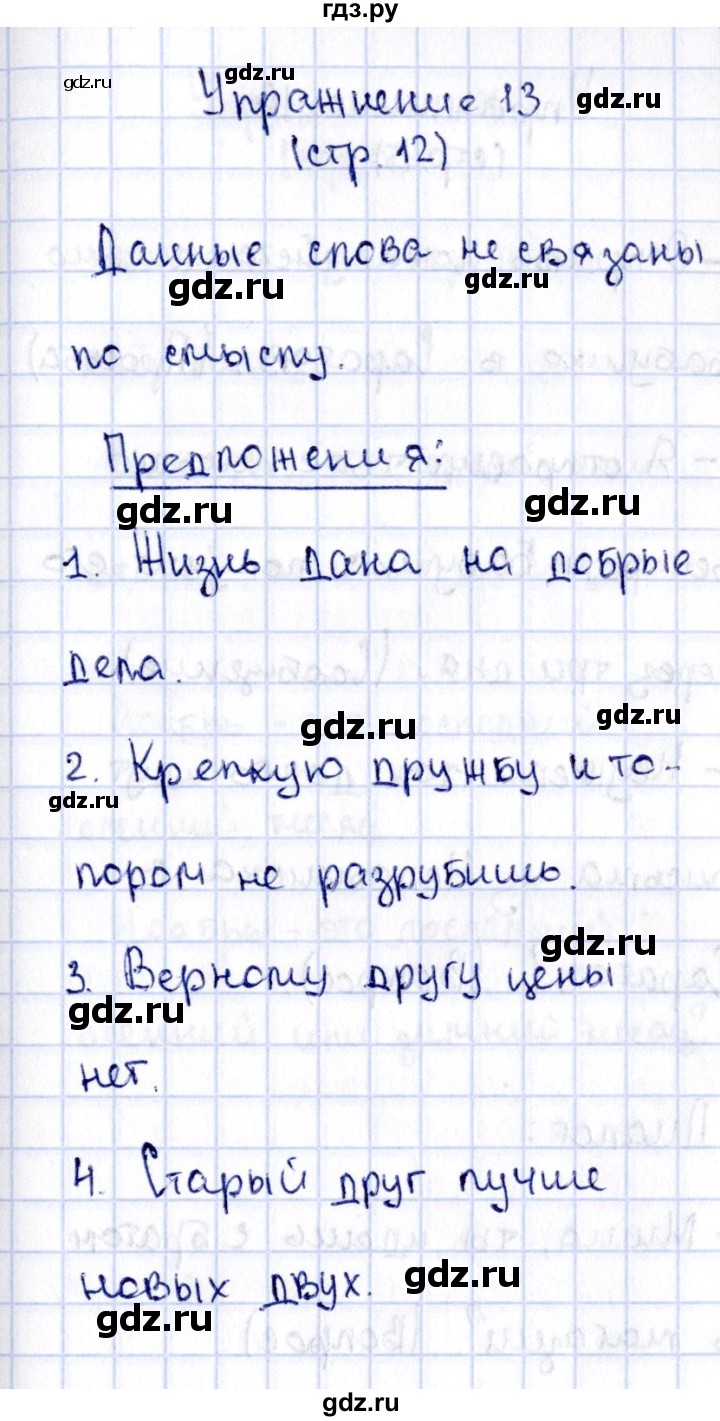 гдз.ру
gdz.ru
gdz.ru
Упражнение 13
gdz.ru
(стр. 12)
Данные слова не связаны
gdz.ru
gdz.ru
по смыслу.
Предложения:
gdz.ru
gdz.ru
1. Жизнь дана на добрые
дела.
gdz.ru
gdz.ru
2. Крепкую дружбу и то-
gdz.ru
пором не разрубишь.
gdz.ru
3. Верному другу цены
gdz.ru
нет.
4. Старый друг лучше
новых двух.
gdz.ru
gdz.ru
gdz.ru